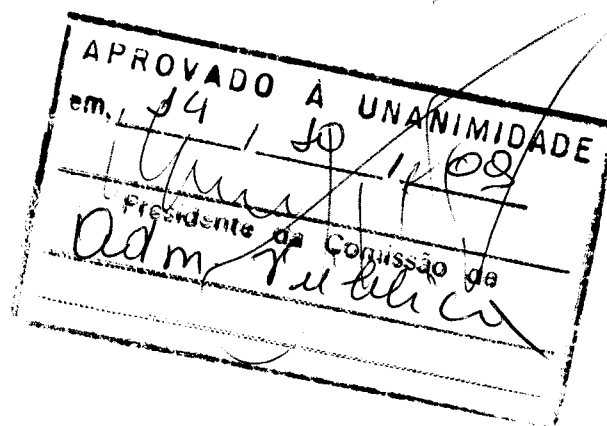 APROVADO À UNANIMIDADE
em, 14 / 10 / 09
Presidente da Comissão de
Adm. Pública